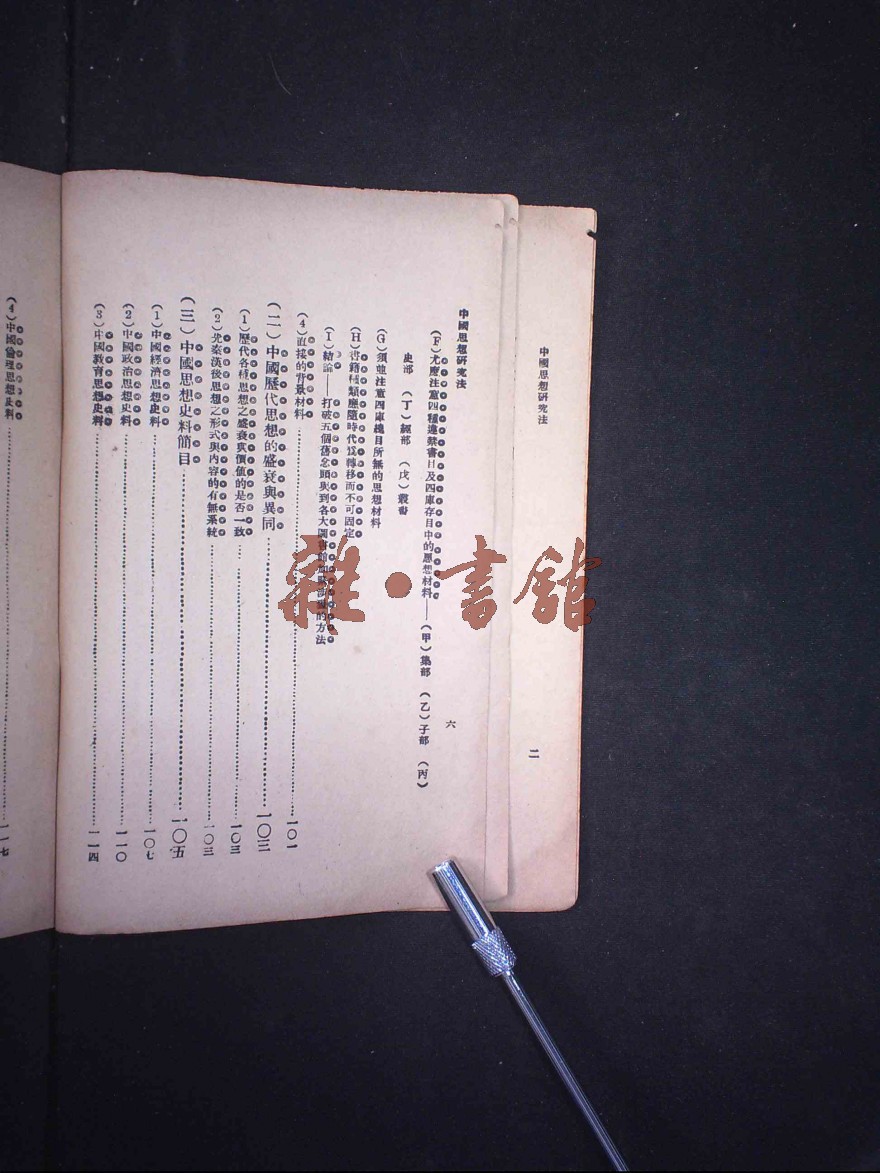 中國思想研究法
二
中國思想研究法
六
(F)尤應注意四種違禁書目及四庫存目中的思想材料——(甲)集部 (乙)子部 (丙)
史部 (丁)經部 (戊)叢書
(G)須並注意四庫總目所無的思想材料
(H)書籍種類應隨時代爲轉移而不可固定
(I)結論——打破五個舊念頭與到各大圖書館的方法
(4)直接的背景材料……一〇一
(二)中國歷代思想的盛衰與異同……一〇三
(1)歷代各種思想之盛衰與價值的是否一致……一〇三
(2)先秦漢後思想之形式與內容的有無系統……一〇三
(三)中國思想史料簡目……一〇五
(1)中國經濟思想史料……一〇七
(2)中國政治思想史料……一一〇
(3)中國教育思想史料……一一四
(4)中國倫理思想史料……一一七
雜·書館